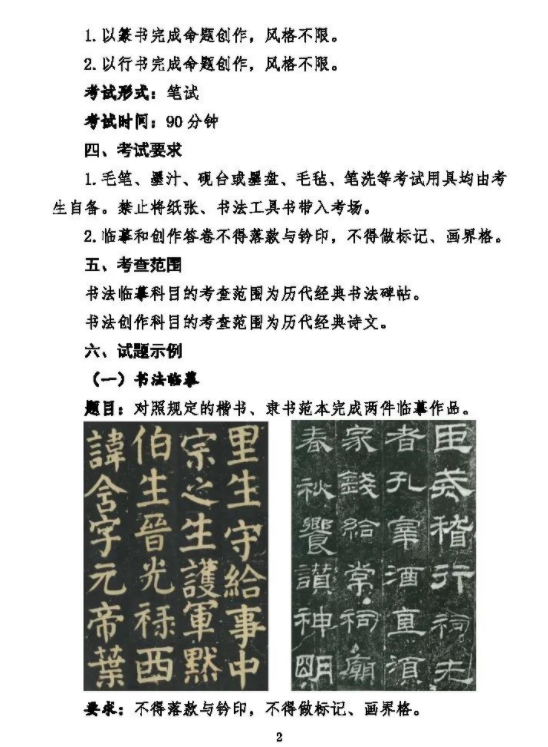 1.以篆书完成命题创作，风格不限。
2.以行书完成命题创作，风格不限。
考试形式：笔试
考试时间：90 分钟
四、考试要求
1.毛笔、墨汁、砚台或墨盘、毛毡、笔洗等考试用具均由考
生自备。禁止将纸张、书法工具书带入考场。
2.临摹和创作答卷不得落款与钤印，不得做标记、画界格。
五、考查范围
书法临摹科目的考查范围为历代经典书法碑帖。
书法创作科目的考查范围为历代经典诗文。
六、试题示例
（一）书法临摹
题目：对照规定的楷书、隶书范本完成两件临摹作品。
里生守給事中
宗之生護軍黙
伯生晉光禄西
諱含字元帝葉
臣盡稽行祠先
者孔宰酒直湏
家錢給常祠廟
春秋饗讃神明
要求：不得落款与钤印，不得做标记、画界格。
2